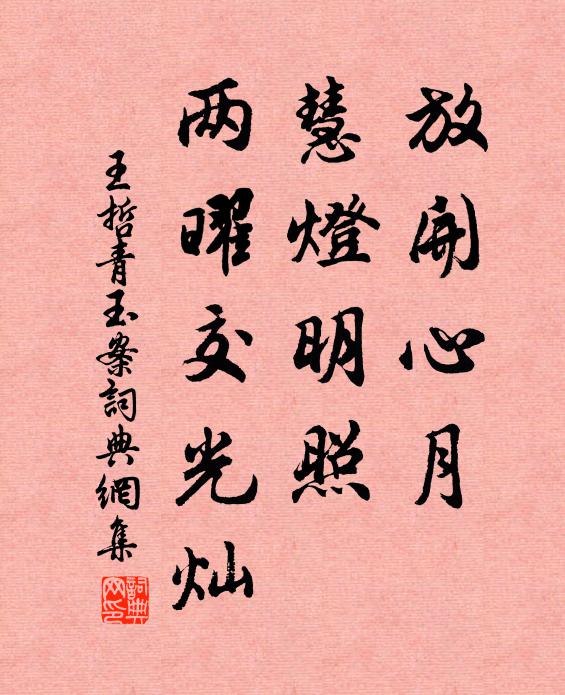 放開心月
慧燈明照
两曜交光灿
王哲青玉案詞典網集
詞典网印